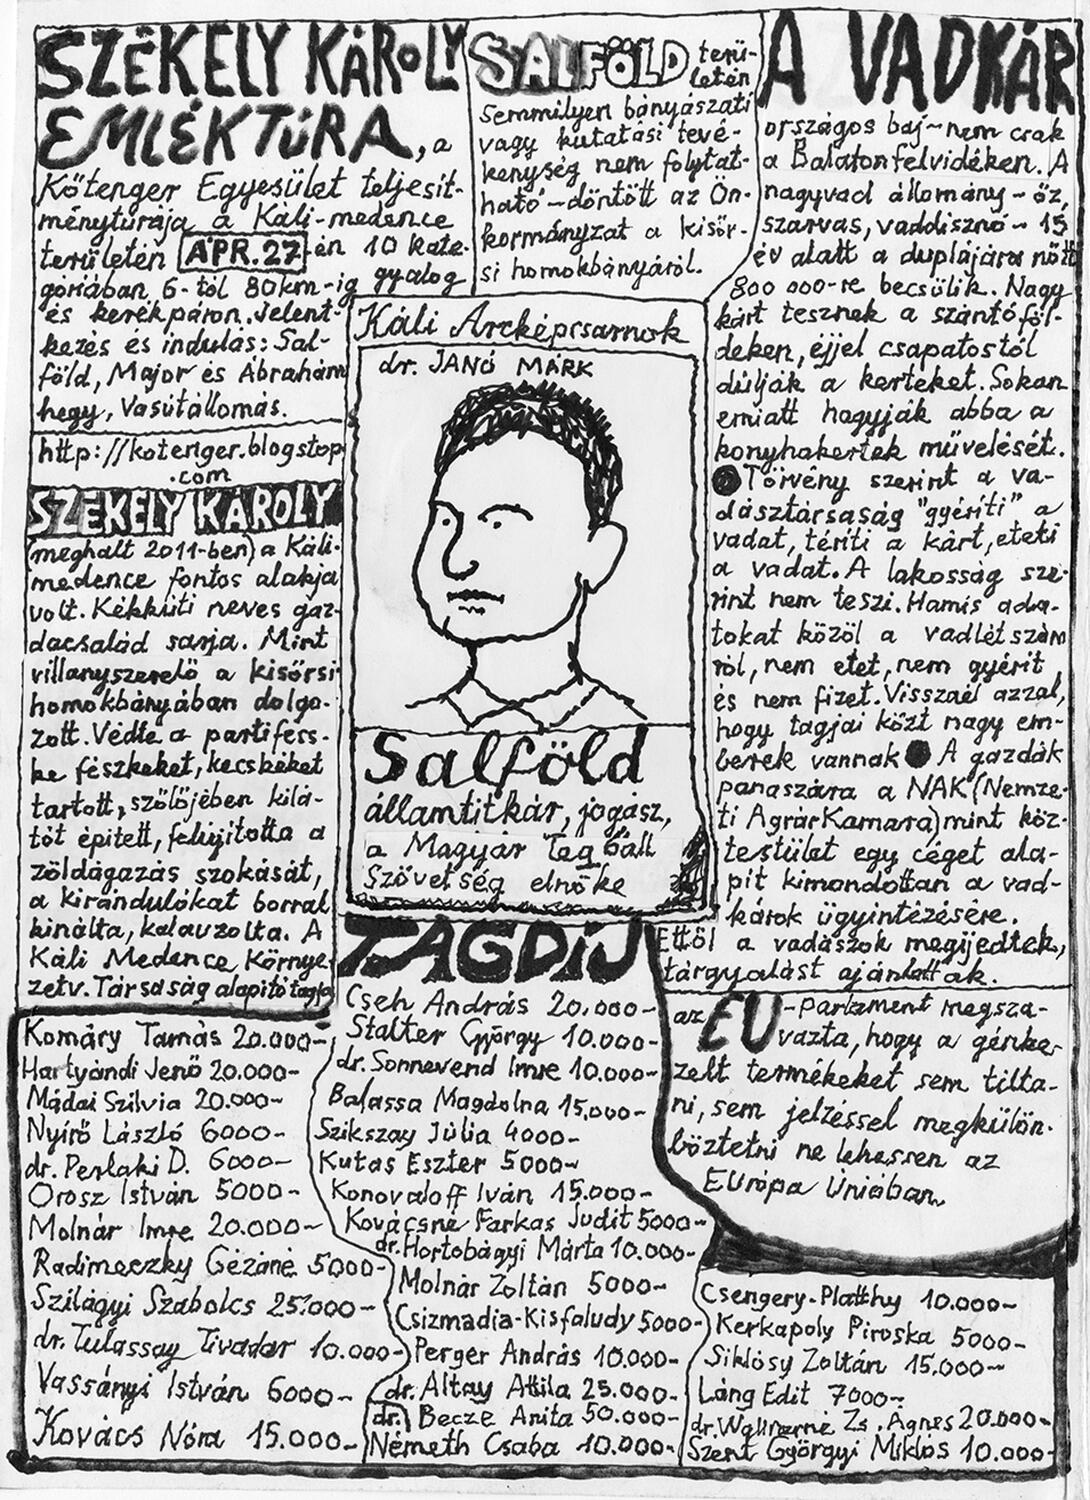 SZÉKELY KÁROLY
EMLÉKTÚRA, a
Kőtenger Egyesület teljesít-
ménytúrája a Káli-medence
területén ÁPR. 27-én 10 kate-
góriában 6-tól 80km-ig gyalog
és kerékpáron. Jelent-
kezés és indulás: Sal-
föld, Major és Ábrahám
hegy, Vasútállomás.
http://kotenger.blogstop
.com
SZÉKELY KÁROLY
(meghalt 2011-ben) a Káli-
medence fontos alakja
volt. Kékkúti neves gaz-
dacsalád sarja. Mint
villanyszerelő a kisőrsi
homokbányában dolgo-
zott. Védte a partifecs-
ke fészkeket, kecskéket
tartott, szőlőjében kilá-
tót épített, felújította a
zöldágazás szokását,
a kirándulókat borral
kinálta, kalauzolta. A
Káli Medence Környe-
zetv. Társaság alapító tagja
SALFÖLD terü-
letén
semmilyen bányászati
vagy kutatási tevé-
kenység nem folytat-
ható - döntött az Ön-
kormányzat a kisőr-
si homokbányáról.
Káli Arcképcsarnok
dr. JANÓ MÁRK
Salföld
államtitkár, jogász,
a Magyar Teqball
Szövetség elnöke
A VADKÁR
országos baj - nem csak
a Balatonfelvidéken. A
nagyvad állomány - őz,
szarvas, vaddisznó - 15
év alatt a duplájára nőtt
800 000-re becsülik. Nagy
kárt tesznek a szántóföl-
deken, éjjel csapatostól
dúlják a kerteket. Sokan
emiatt hagyják abba a
konyhakertek művelését.
● Törvény szerint a va-
dásztársaság "gyéríti" a
vadat, téríti a kárt, eteti
a vadat. A lakosság sze-
rint nem teszi. Hamis ada-
tokat közöl a vadlétszám
ról, nem etet, nem gyérit
és nem fizet. Visszaél azzal,
hogy tagjai közt nagy em-
berek vannak ● A gazdák
panaszára a NAK (Nemze-
ti AgrárKamara) mint köz-
testület egy céget ala-
pít kimondottan a vad-
károk ügyintézésére.
Ettől a vadászok megijedtek,
tárgyalást ajánlottak.
az EU-parlament megsza-
vazta, hogy a génke-
zelt termékeket sem tilta-
ni, sem jelzéssel megkülön-
böztetni ne lehessen az
Európa Unióban.
TAGDÍJ
Komáry Tamás 20.000-
Hartyándi Jenő 20.000-
Mádai Szilvia 20.000-
Nyírő László 6000-
dr. Perlaki D. 6000-
Orosz István 5000-
Molnár Imre 20.000-
Radimeczky Gézáné 5000-
Szilágyi Szabolcs 25.000-
dr. Tulassay Tivadar 10.000-
Vassányi István 6000-
Kovács Nóra 15.000-
Cseh András 20.000-
Stalter György 10.000-
dr. Sonnevend Imre 10.000-
Balassa Magdolna 15.000-
Szikszay Júlia 4000-
Kutas Eszter 5000-
Konovaloff Iván 15.000-
Kovácsné Farkas Judit 5000-
dr. Hortobágyi Márta 10.000-
Molnár Zoltán 5000-
Csizmadia-Kisfaludy 5000-
Perger András 10.000-
dr. Altay Attila 25.000-
dr. Becze Anita 50.000-
Németh Csaba 10.000-
Csengery-Platthy 10.000-
Kerkapoly Piroska 5000-
Siklósy Zoltán 15.000-
Láng Edit 7000-
dr. Zs. Ágnes 20.000-
Szent Györgyi Miklós 10.000-